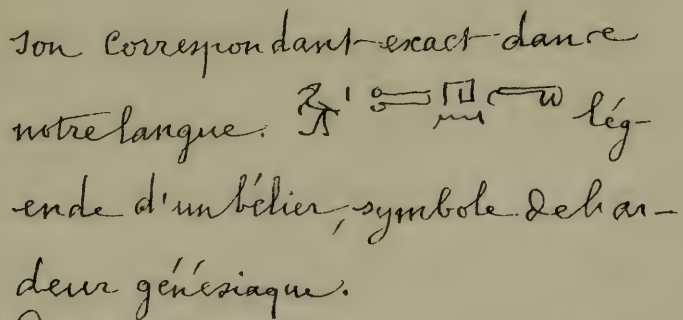 son correspondant exact dans
notre langue. lég-
ende d'un bélier, symbole de l'ar-
deur génésiaque.